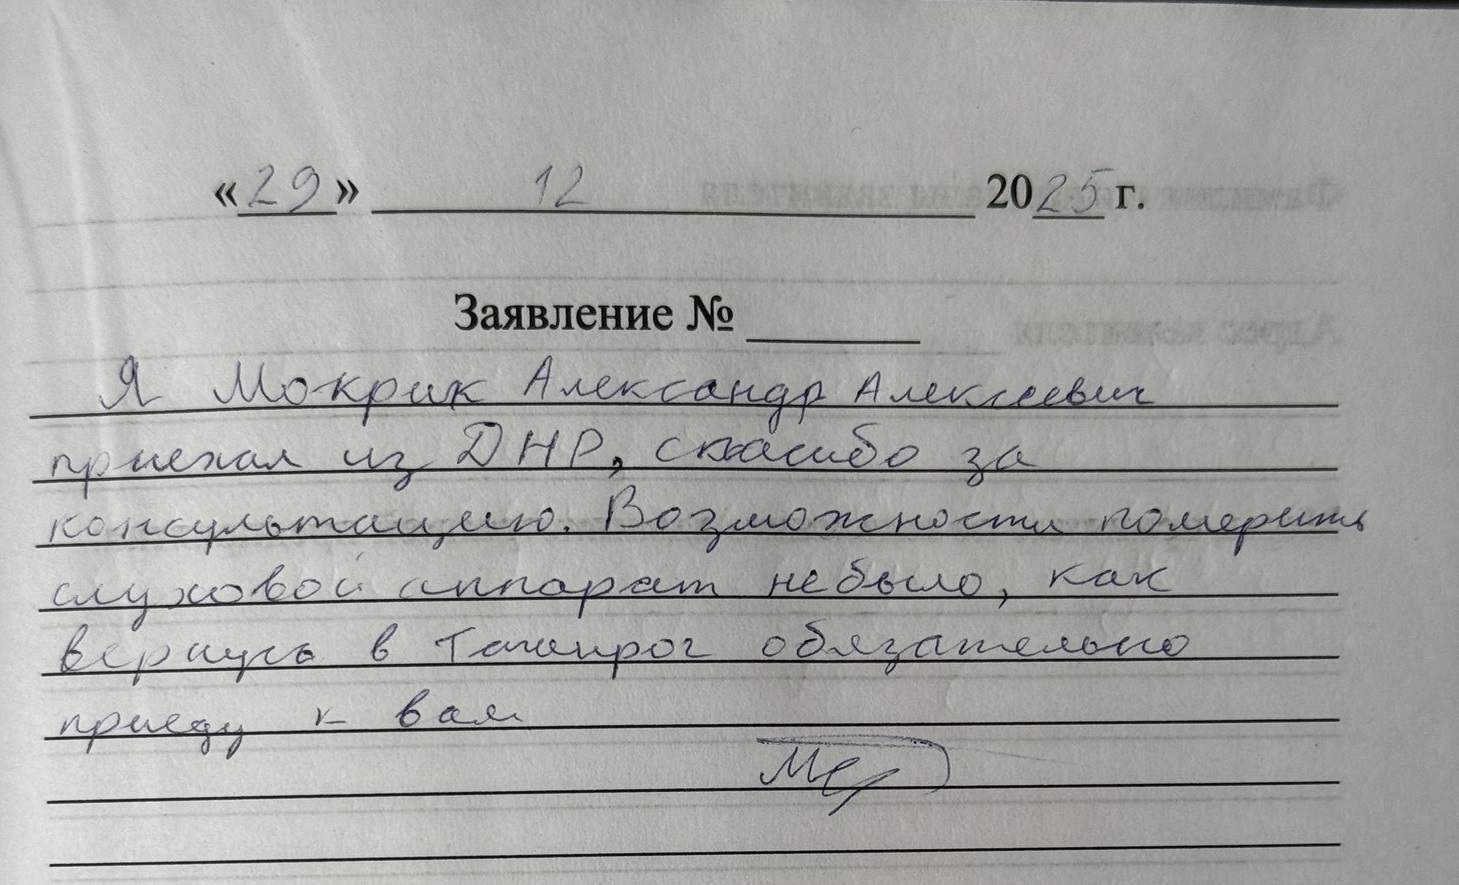 «29» 12 2025 г.
Заявление №
Я Мокрик Александр Алексеевич
приехал из ДНР, спасибо за
консультацию. Возможности померить
слуховой аппарат небыло, как
вернусь в Таганрог обязательно
приеду к вам